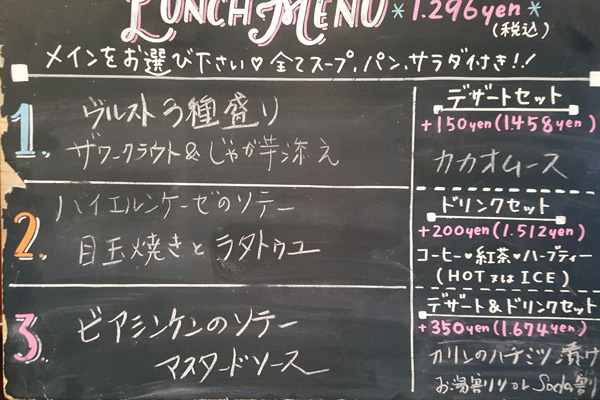 LUNCH MENU *1.296yen*
(税込)
メインをお選び下さい♡全てスープ,パン,サラダ付き!!
1. ヴルスト3種盛り
ザワークラウト&じゃが芋添え
2. バイエルンケーゼのソテー
目玉焼きとラタトゥユ
3. ビアシンケンのソテー
マスタードソース
デザートセット
+150yen(1458yen)
カカオムース
ドリンクセット
+200yen(1.512yen)
コーヒー♥紅茶♥ハーブティー
(HOT又はICE)
デザート&ドリンクセット
+350yen(1.674yen)
カリンのハチミツ漬け
お湯割り or Soda割